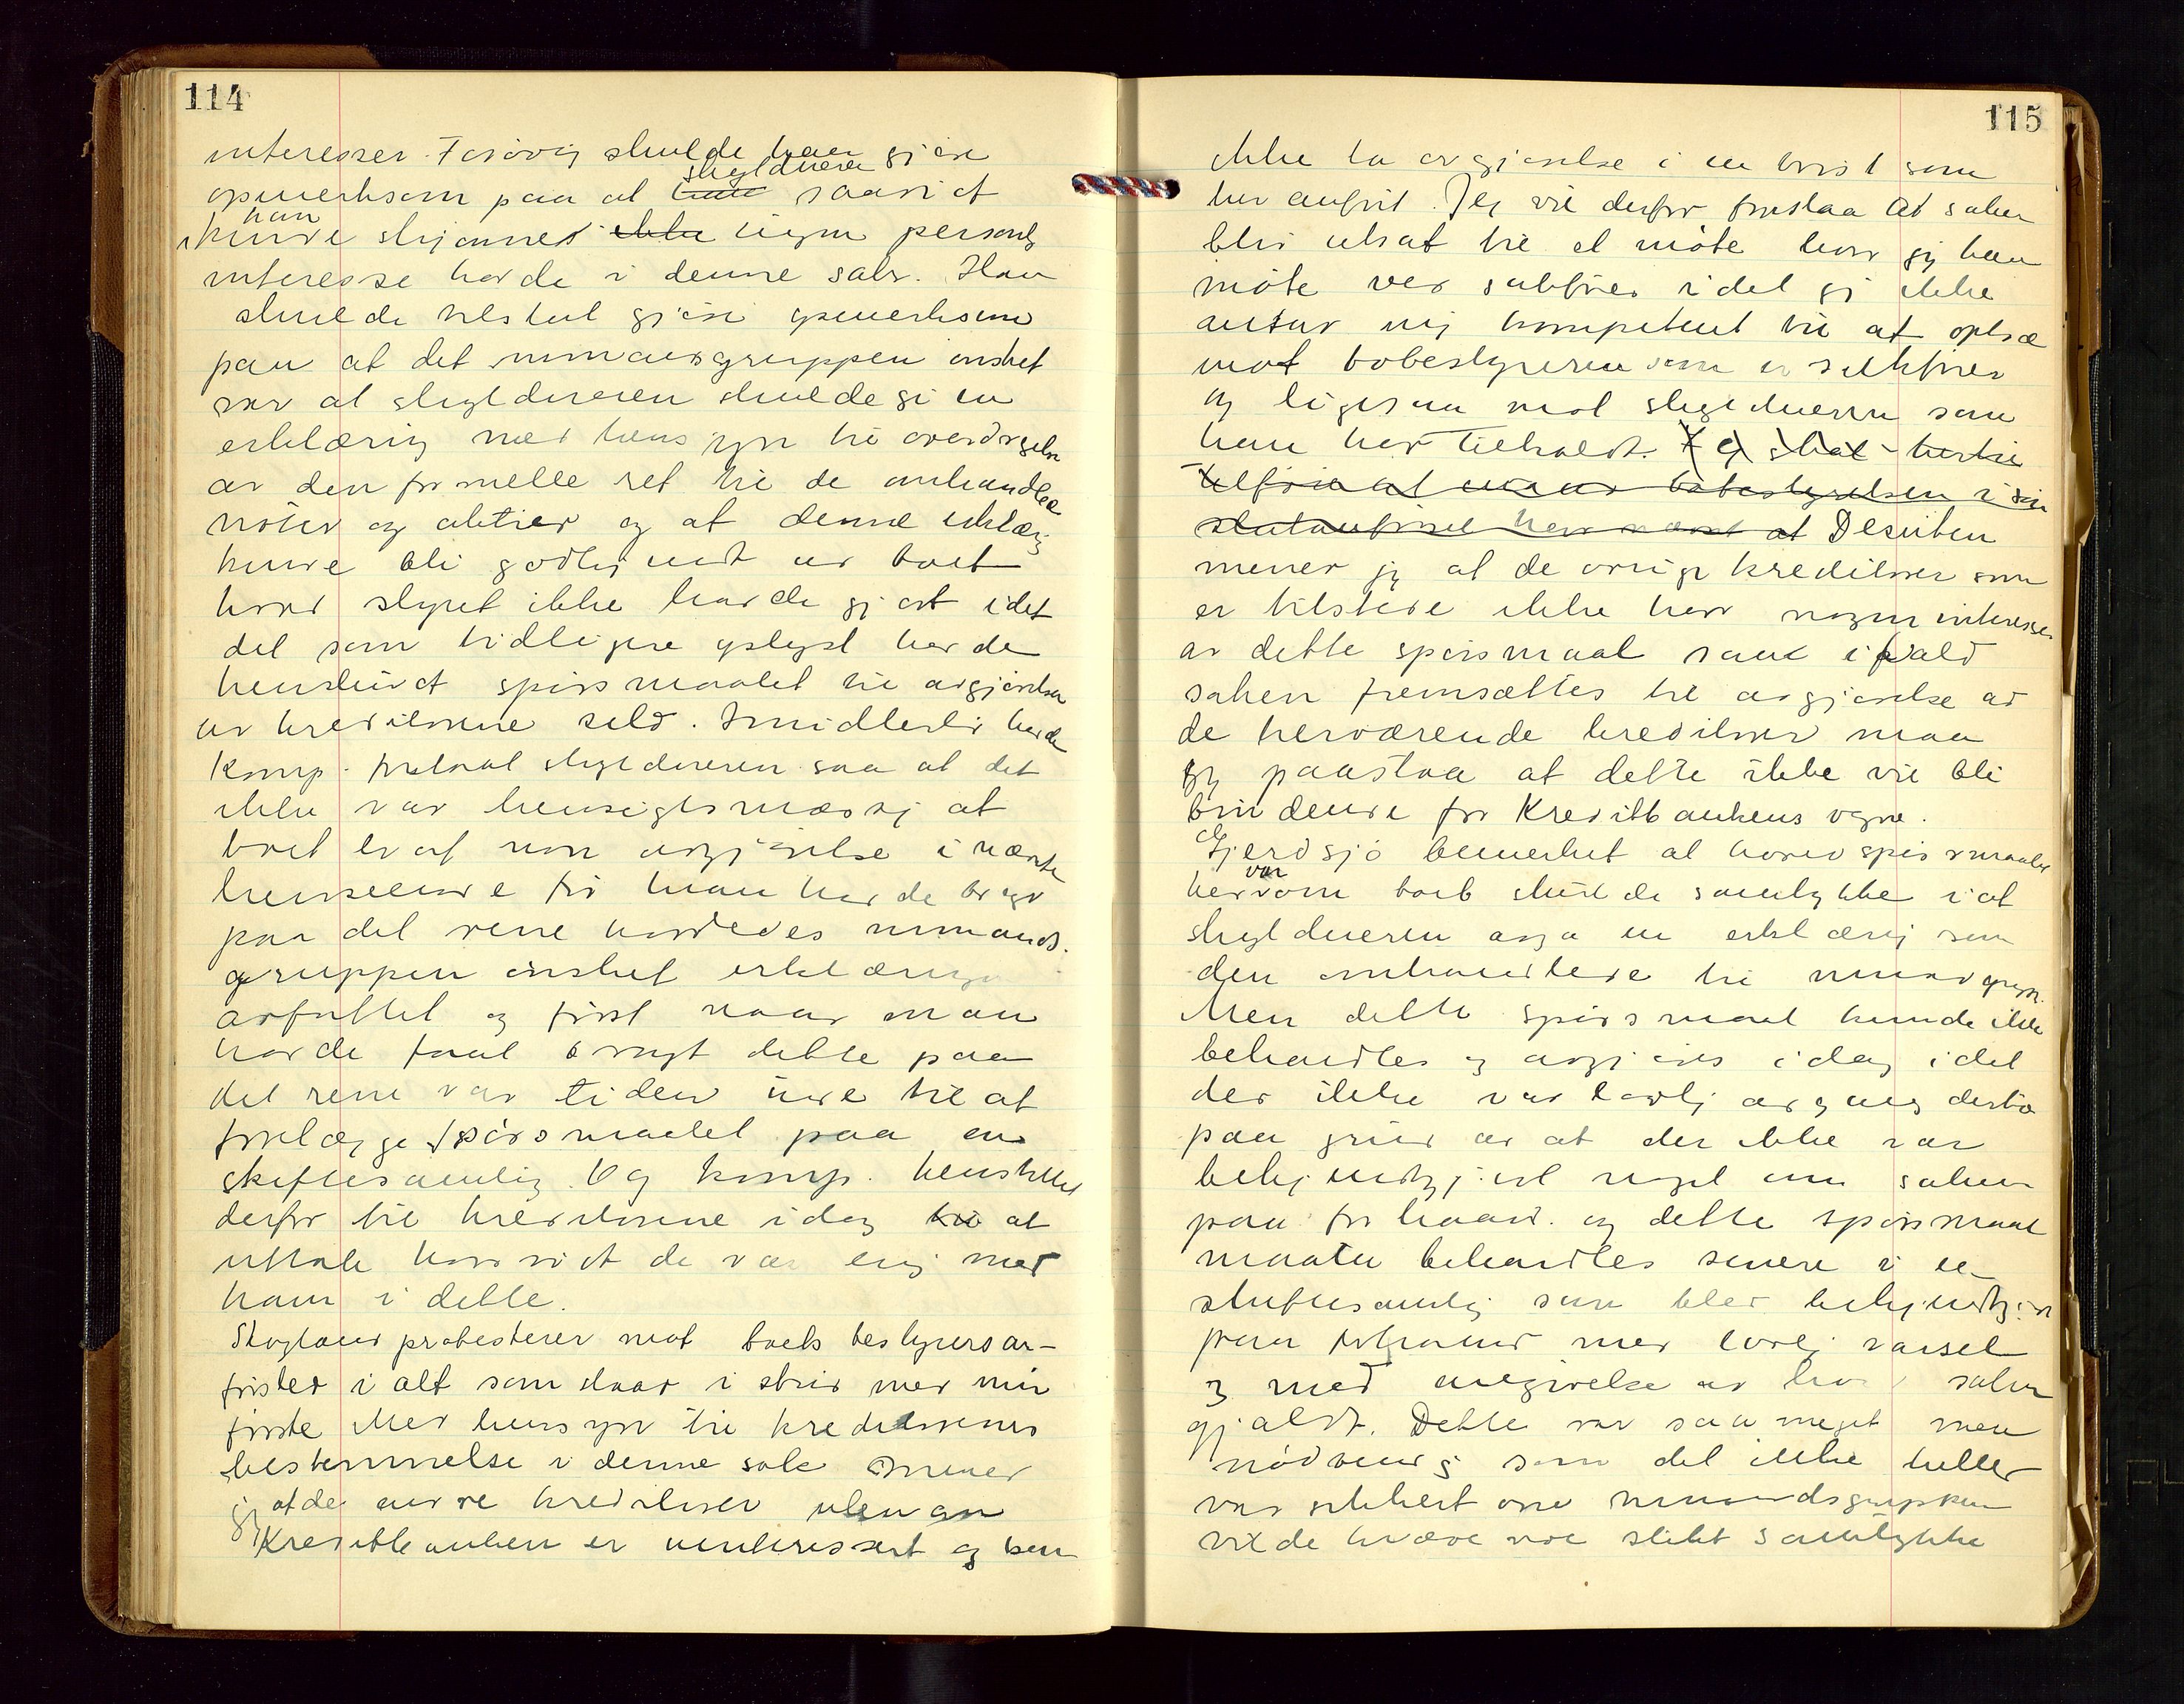 114
interesser. Forøvrig skulde han gjøre
skyldneren
opmerksom paa at saavidt
han
kunde skjønnes ikke nogen personlig
interesse havde i denne sak. Han
skulde tilslut gjøre opmerksom
paa at det nimandsgruppen ønsket
var at skyldneren skulde gi en
erklæring med hensyn til overdragelse
av den formelle ret til de omhandlede
noter og aktier og at denne erklæring
kunde bli godkjendt av boet
hvad styret ikke havde gjort idet
det som tidligere oplyst havde
henskudt spørsmaalet til avgjørelse
av kreditorene selv. Imidlertid havde
Komp. fortalt skyldneren saa at det
ikke var hensigtsmæssig at
boet traf noen avgjørelse i nævnte
henseende før man havde bragt
paa det rene hvorledes nimands-
gruppen ønsket erklæringen
avfattet og først naar man
havde faat bragt dette paa
det rene var tiden inde til at
forelægge spørsmaalet paa en
skiftesamling. Og komp. henstillet
derfor til kreditorene idag til at
uttale hvorvidt de var enig med
ham i dette.
Skogland protesterer mot boets bestyrers an-
førsler i alt som staar i strid med min
første. Med hensyn til kreditorenes
bestemmelse i denne sak mener
jeg at de andre kreditorer utenom
Kreditbanken er uinteressert og kan
115
ikke ta avgjørelse i en tvist som
her anført. Jeg vil derfor foreslaa at saken
blir utsat til et møte hvor jeg kan
møte ved sakfører idet jeg ikke
anser mig kompetent til at optræ
mot bobestyreren som er sakfører
og ligesaa mot skyldneren som
han har tilholdt. Jeg skal hertil
tilføie at naar bobestyrelsen i sin
slutanførsel har nævnt at Desuten
mener jeg at de øvrige kreditorer som
er tilstede ikke har nogen interesse
av dette spørsmaal samt ifald
saken fremsættes til avgjørelse av
de herværende kreditorer maa
jeg paastaa at dette ikke vil bli
bindende for Kreditbankens vegne.
Gjerdsjø bemerket at hovedspørsmaalet
var
her om boet skulde samtykke i at
skyldneren avga en erklæring som
den omhandlede til nimandsgruppen.
Men dette spørsmaal kunde ikke
behandles og avgjøres idag idet
der ikke var lovlig adgang dertil
paa grund av at der ikke var
bekjendtgjort noget om saken
paa forhaand. og dette spørsmaal
maatte behandles senere i en
skiftesamling som blev bekjendtgjort
paa forhaand med lovlig varsel
og med angivelse av hvad saken
gjaldt. Dette var saa meget mere
nødvendig som det ikke heller
var sikkert om nimandsgruppen
vilde kræve noe slikt samtykke